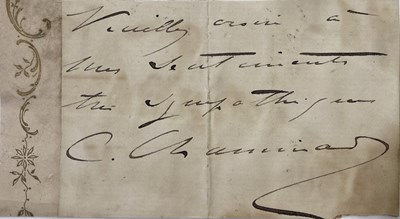 Veuillez croire à
mes sentiments
très sympathiques
C. Chaminade